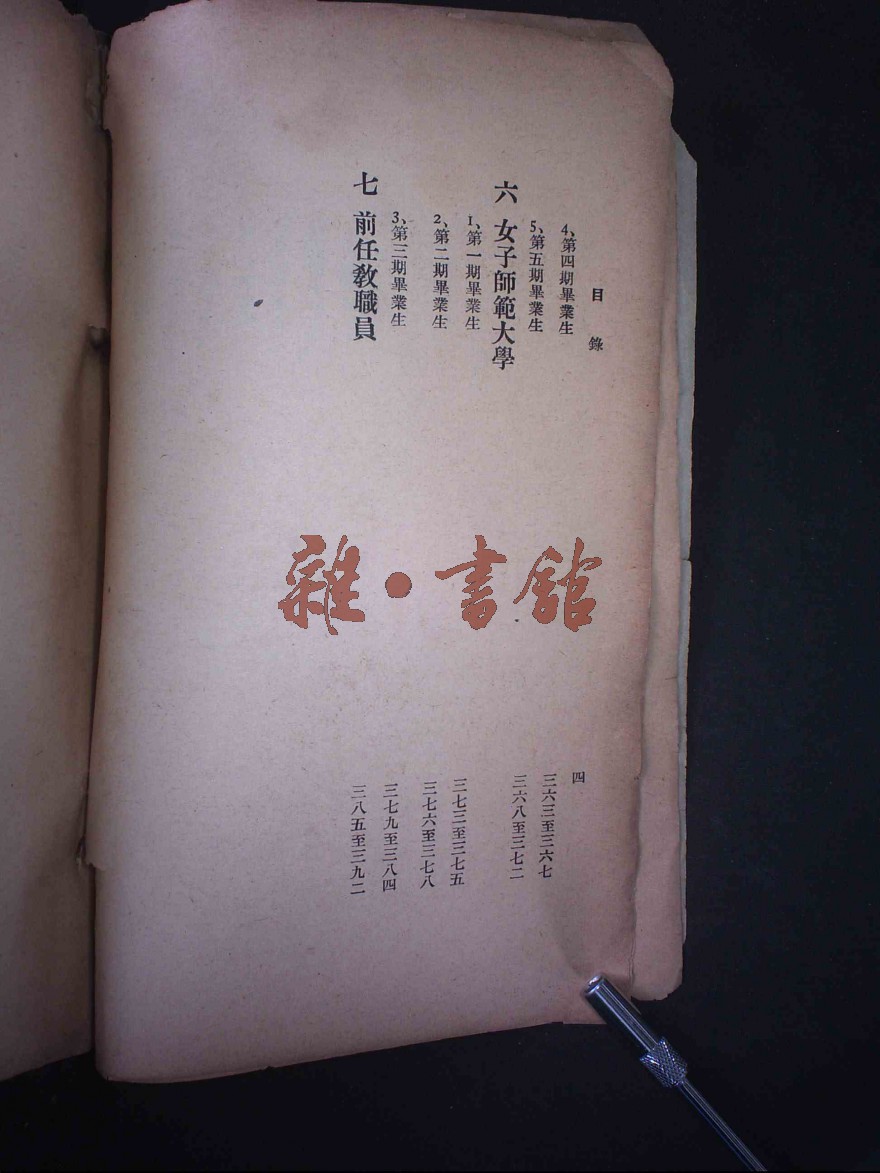 目錄
四
4、第四期畢業生 三六三至三六七
5、第五期畢業生 三六八至三七二
六 女子師範大學
1、第一期畢業生 三七三至三七五
2、第二期畢業生 三七六至三七八
3、第三期畢業生 三七九至三八四
七 前任教職員 三八五至三九二
雜・書館